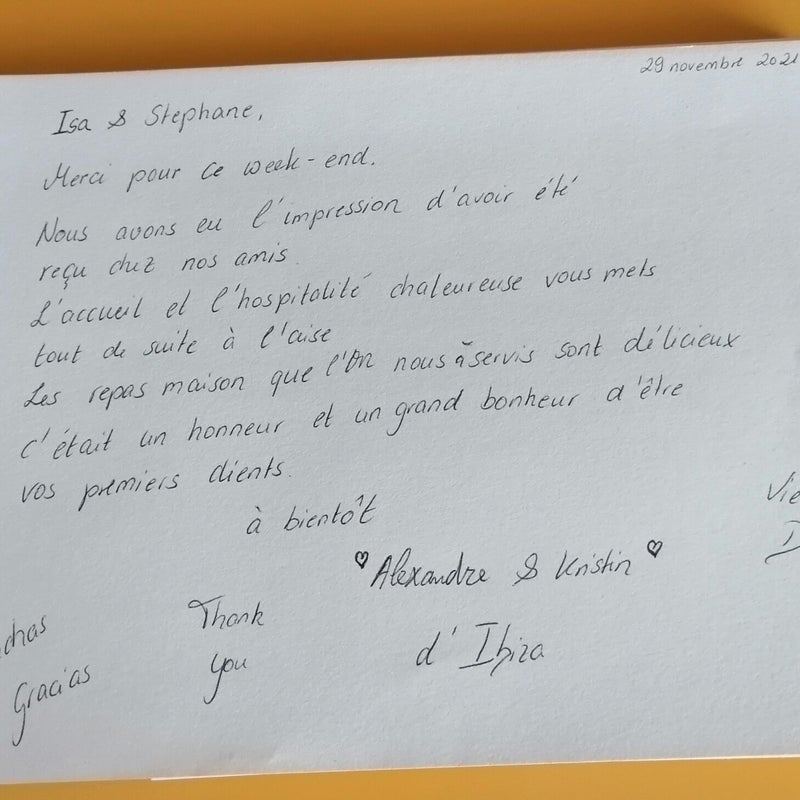 29 novembre 2021
Isa & Stephane,
Merci pour ce week-end.
Nous avons eu l'impression d'avoir été
reçu chez nos amis.
L'accueil et l'hospitalité chaleureuse vous mets
tout de suite à l'aise
Les repas maison que l'on nous à servis sont délicieux
c'était un honneur et un grand bonheur d'être
vos premiers clients.
à bientôt
♡ Alexandre & Kristin ♡
d'Ibiza
Thank
you
chas
Gracias
Vie
D